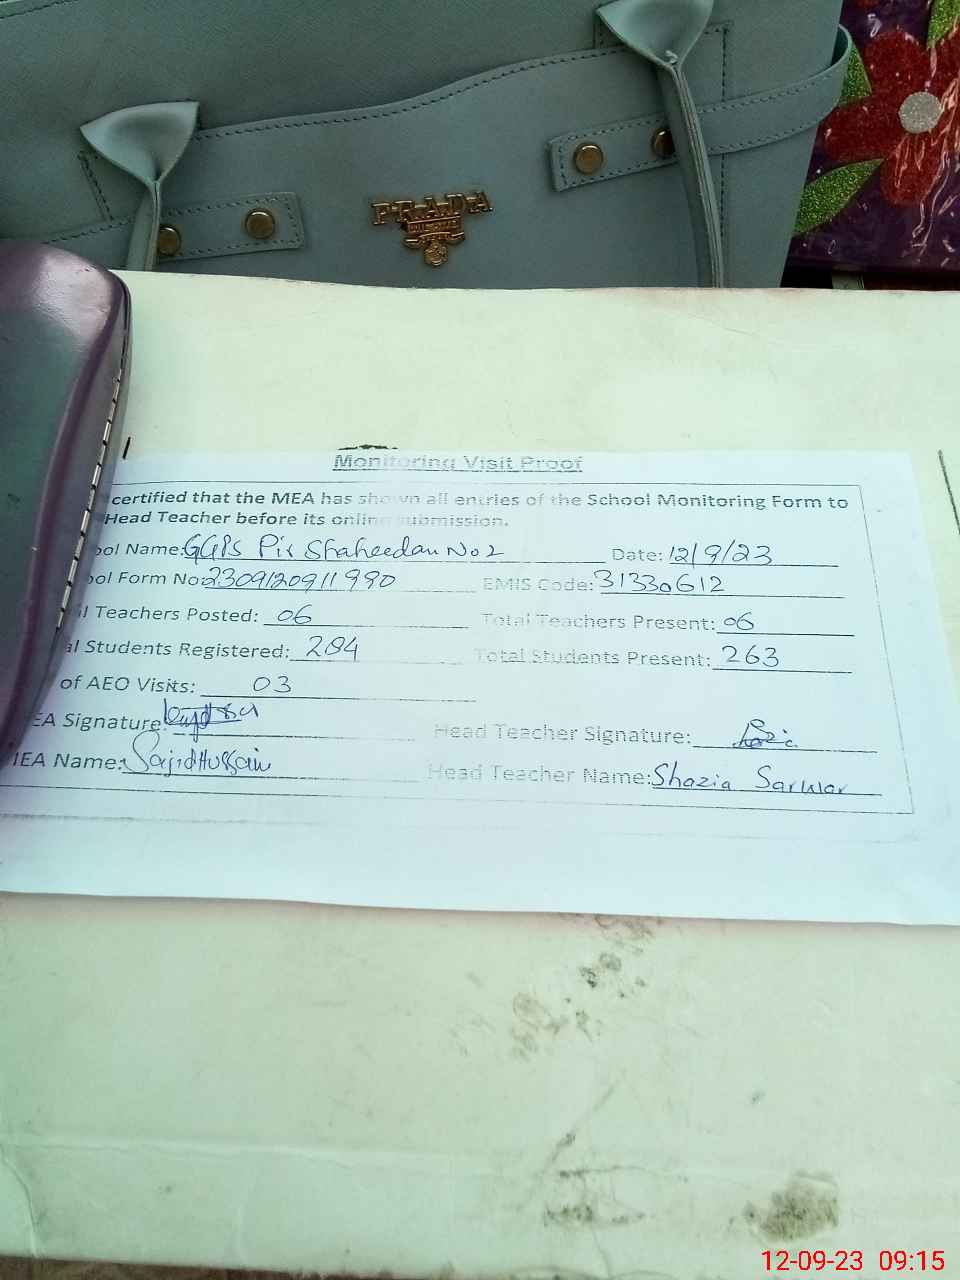 PRADA
Monitoring Visit Proof
certified that the MEA has shown all entries of the School Monitoring Form to
Head Teacher before its online submission.
ool Name: GGPS Pir Shaheedan No 2 Date: 12/9/23
ool Form No: 2309120911990 EMIS Code: 31330612
l Teachers Posted: 06 Total Teachers Present: 06
al Students Registered: 284 Total Students Present: 263
of AEO Visits: 03
EA Signature: Head Teacher Signature:
IEA Name: Sajid Hussain Head Teacher Name: Shazia Sarwar
12-09-23 09:15